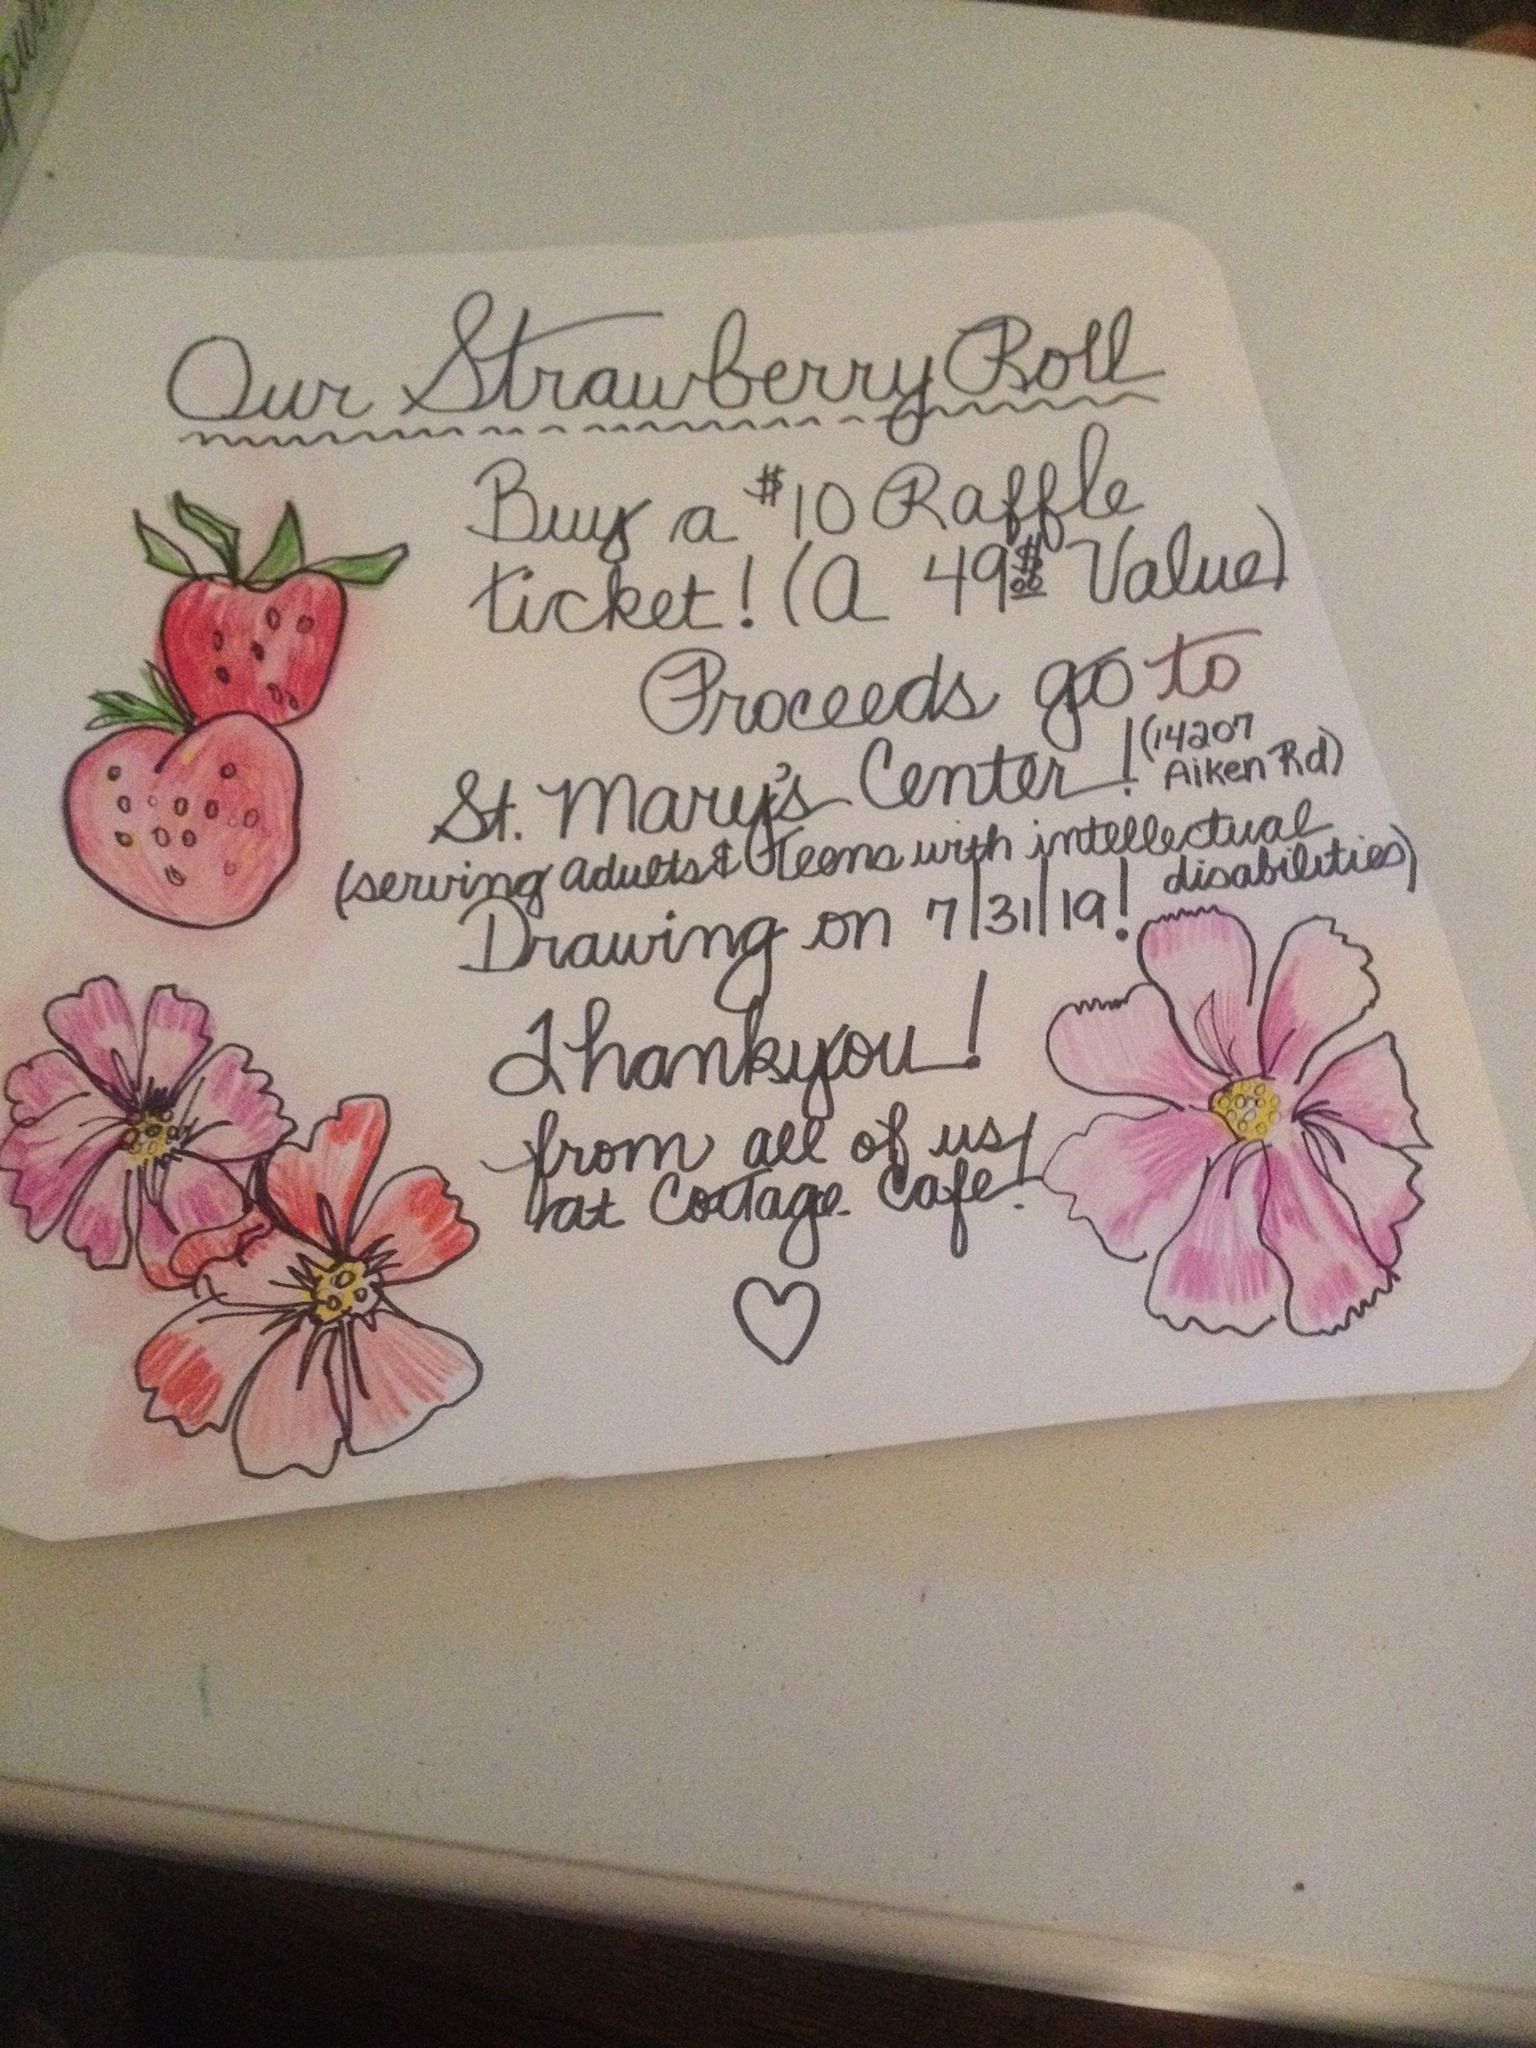 Our Strawberry Roll
Buy a $10 Raffle
ticket! (A 49$00 Value)
Proceeds go to
St. Mary's Center! (14207
Aiken Rd)
(serving adults & Teens with intellectual
disabilities)
Drawing on 7/31/19!
Thankyou!
from all of us
at Cottage Cafe!